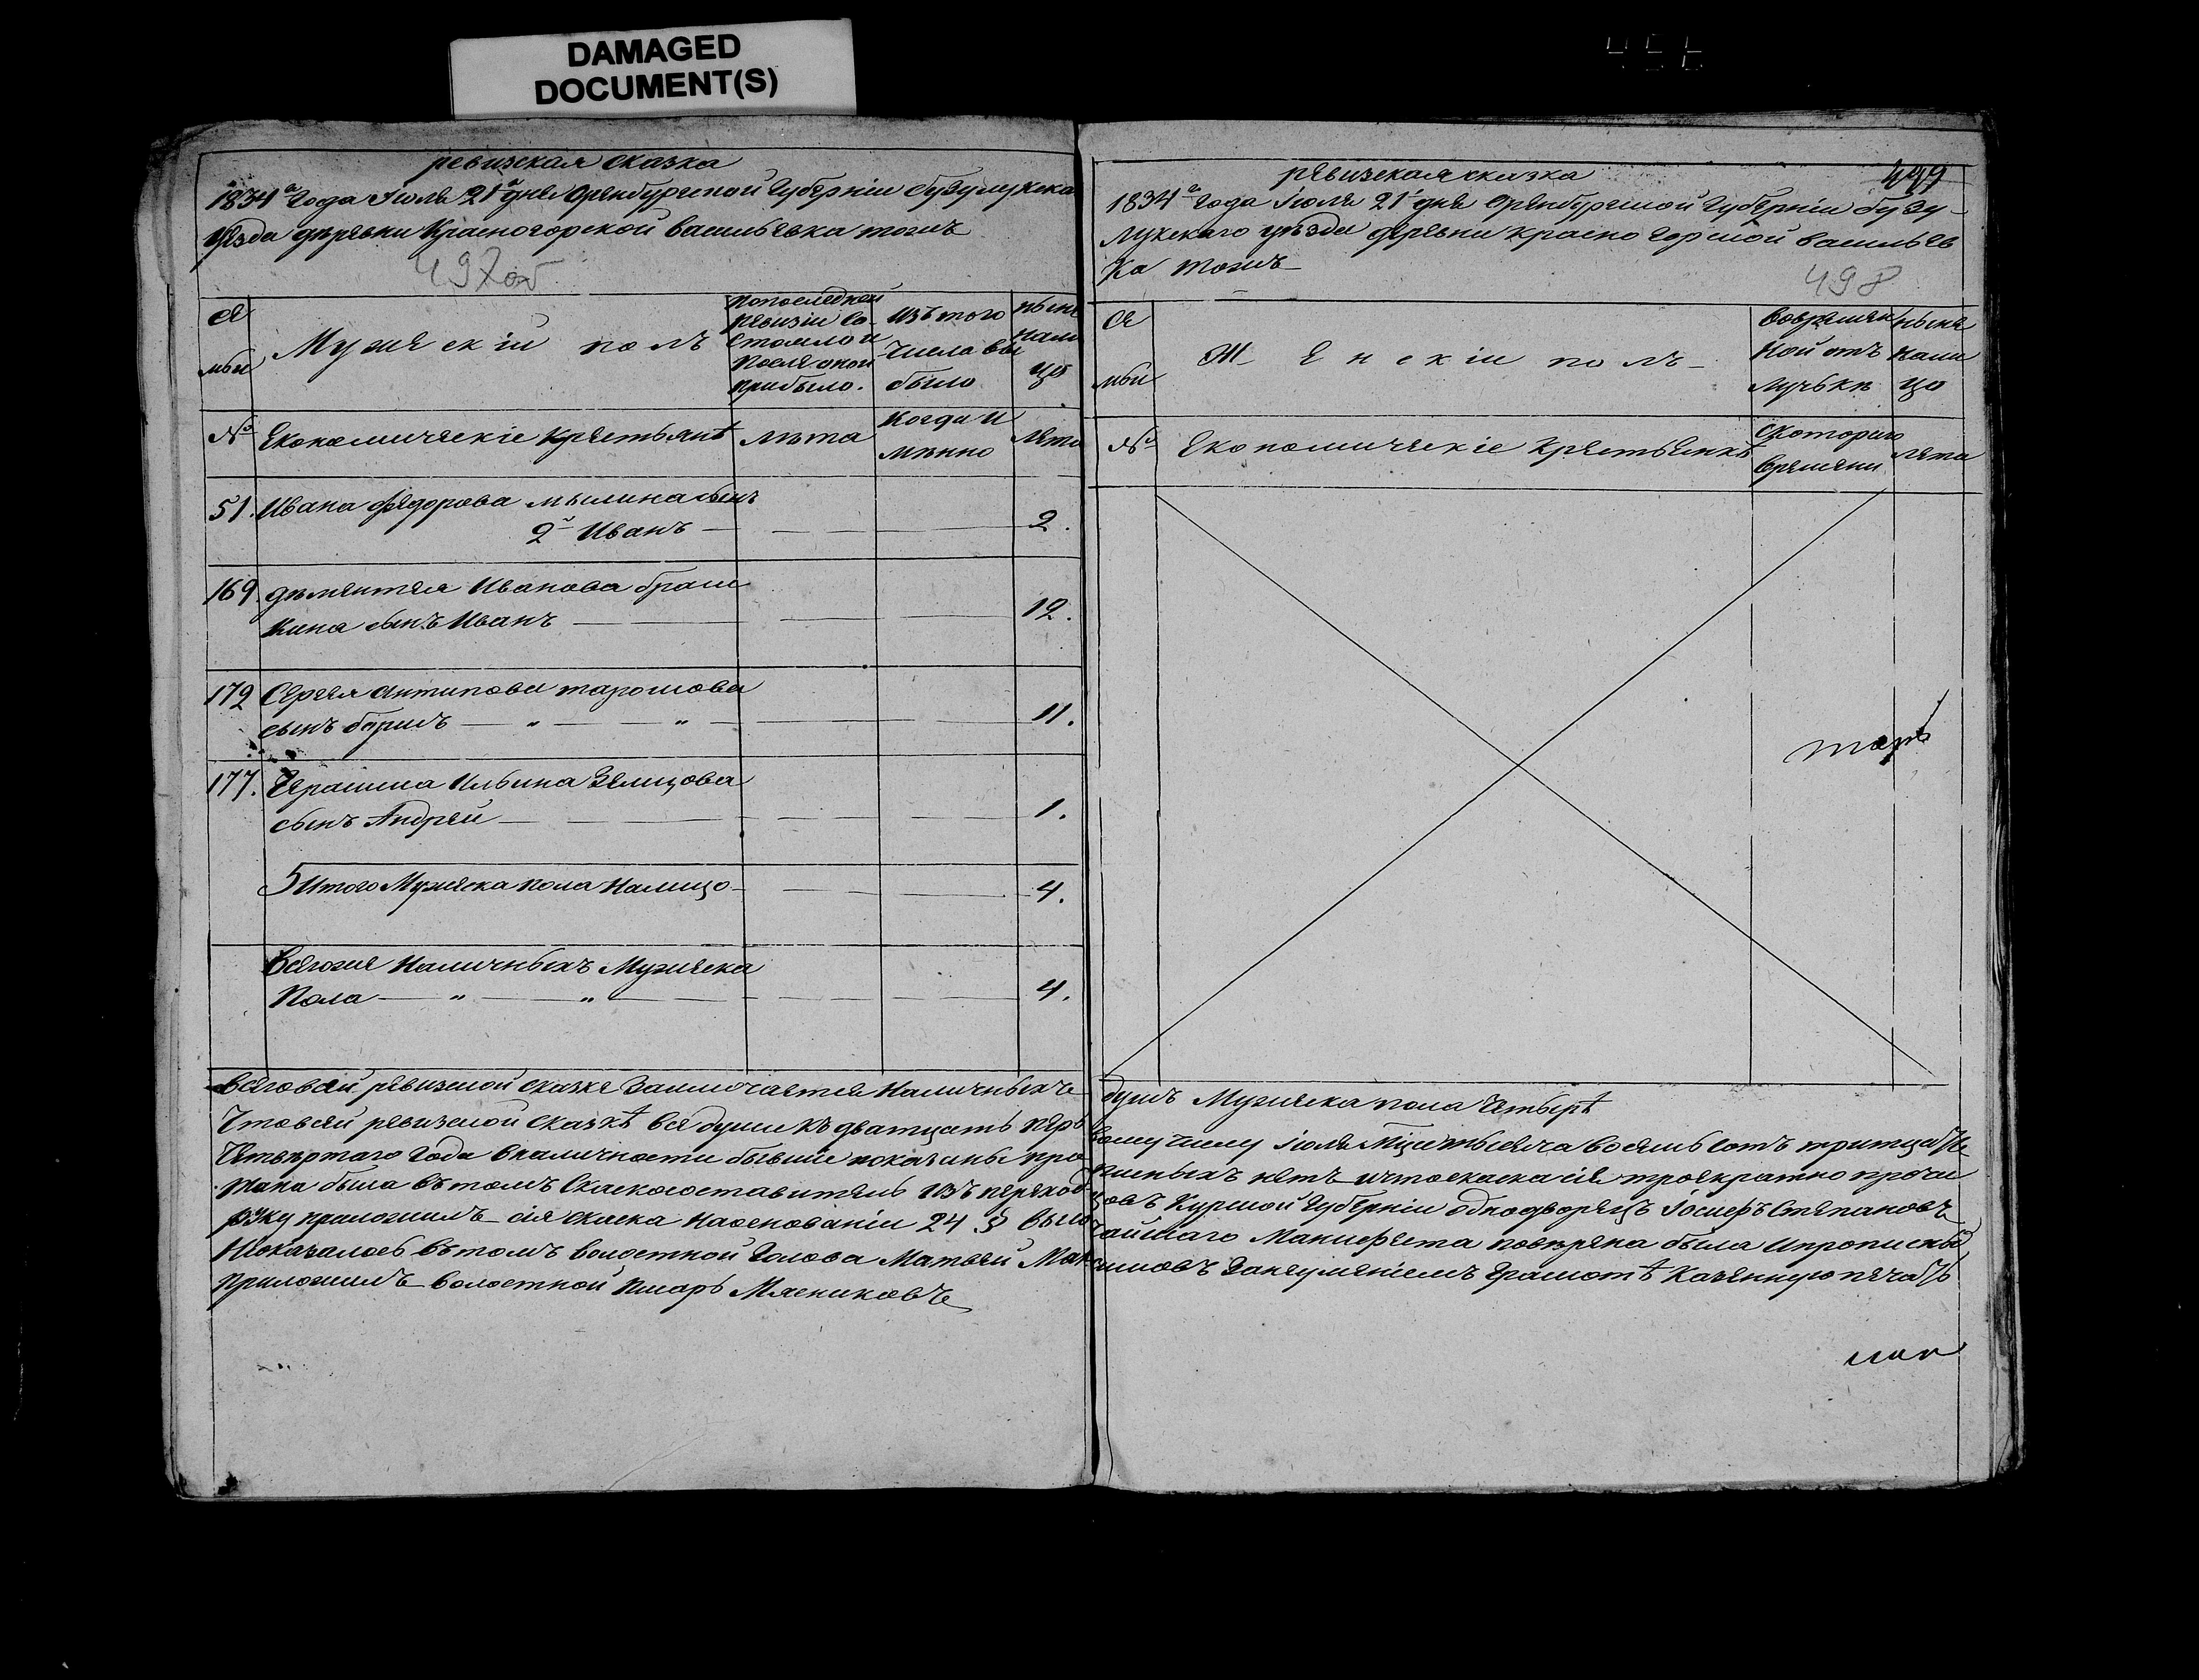 DAMAGED
DOCUMENT(S)
ревизская сказка
1834го года Июля 21го дня Оренбургской Губерніи бузулукска
уезда деревни Красногорской васильевка тожъ
497об
се
мьи
Мужескій полъ
попоследней
ревизіи со
стояло и
после оной
прибыло.
изътого
числа вы
было
ныне
нали
цо
№
Економическіе крестьянѣ
лѣта
когда и
мянно
лета
51. Ивана Федорова мылина сынъ
2й Иванъ
2.
169. дементея Иванова браш
кина сынъ Иванъ
12.
172 Сергея антипова
сынъ борисъ
11.
177. Герасима Ильина Земцова
сынъ Андрей
1.
Итого Мужеска пола Налицо
4.
Всегоже Наличныхъ Мужеска
Пола
4.
Всеговсей ревизской сказке Заключается Наличныхъ
Чтовсей ревизской сказкѣ все души къ дватцать перв
Четвертаго года вналичности бывшие показаны про
тана была вътомъ Сказкосоставитель изъ переход
руку приложилъ сія скаска наоснованіи 24 § высо
Неоказалось вътомъ волостной Голова Матвей Мак
Приложилъ волостной писарь Мясниковъ
456
ревизская сказка
499
1834го года Іюля 21го дня Оренбургской Губерніи бузу-
лукскаго уѣзда деревни красногорской васильев
ка тожъ
498
се
мьи
Женскій полъ
вовремен
ной отъ
лучькѣ
ныне
нали
цо
№
Економическіе крестьянкѣ
скотораго
времени
лета
душъ Мужеска пола Четырѣ
вому числу Іюля тысяча восемь сотъ тритцать
писныхъ нетъ ичтоскаска сія троекратно прочи
цовъ Курской Губерніи однодворецъ Іосифъ Степановъ
чайшаго Манифеста поверена была ипрописныхъ
симовъ Занеуменіемъ Грамотѣ Казенную печать